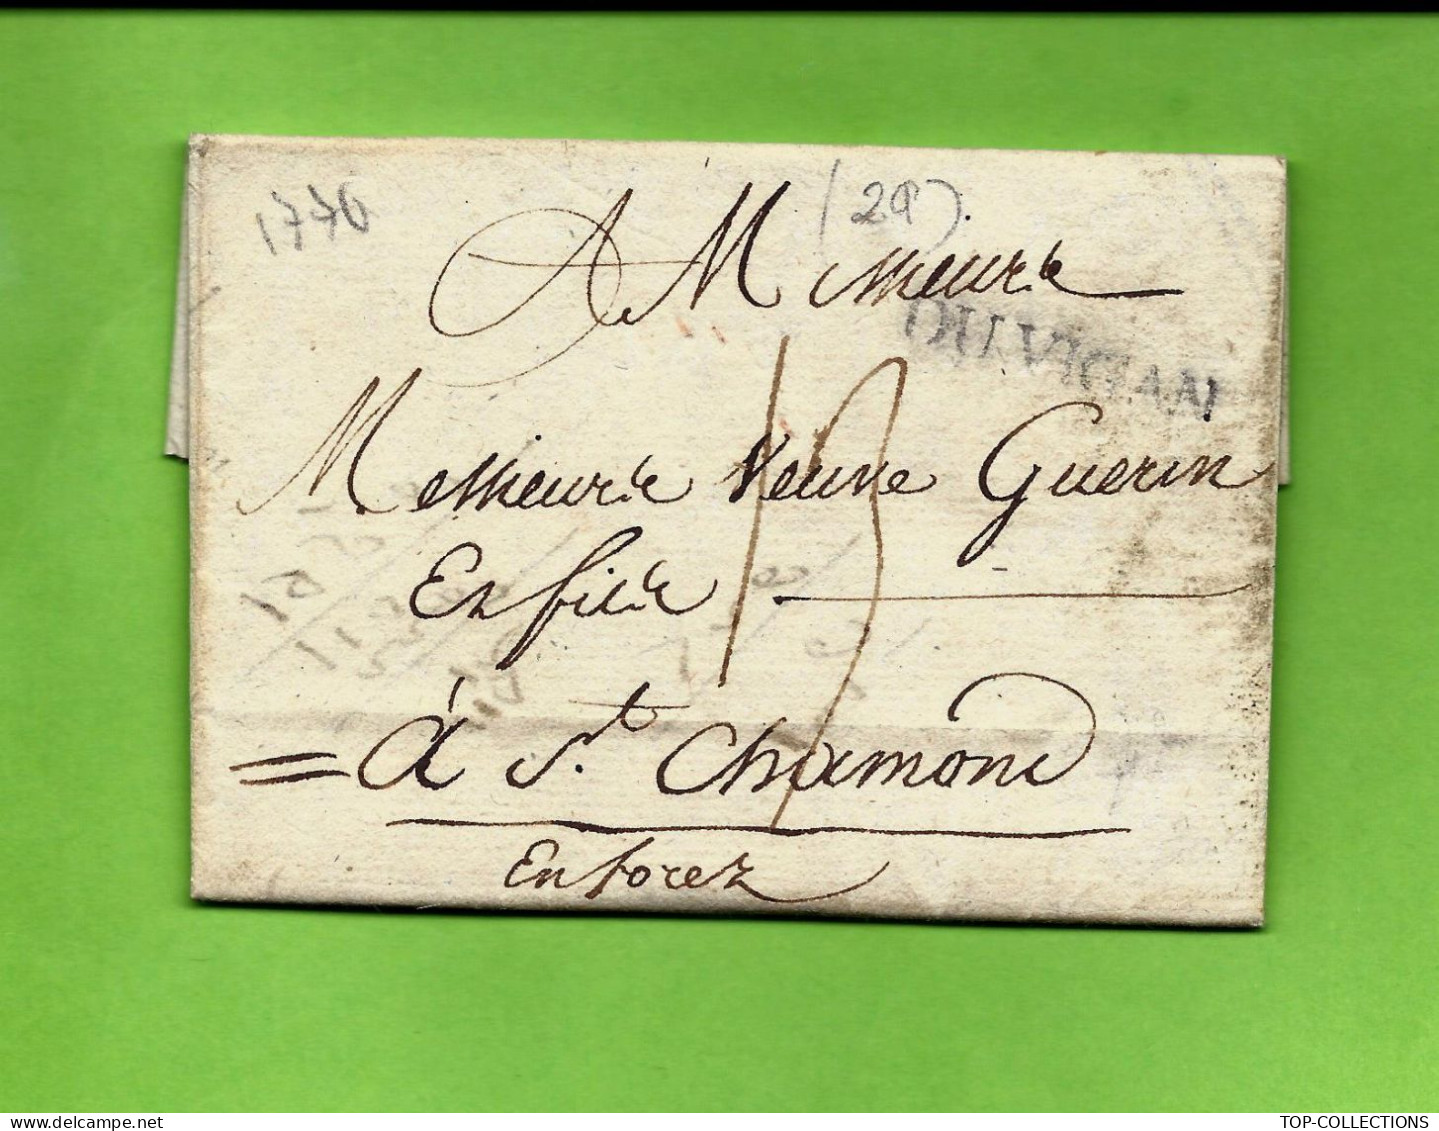 1776
(29).
A Messieurs
DU VIGAN
13
Messieurs Veuve Guerin
Et fils
à St. Chamond
En forez
TOP-COLLECTIONS